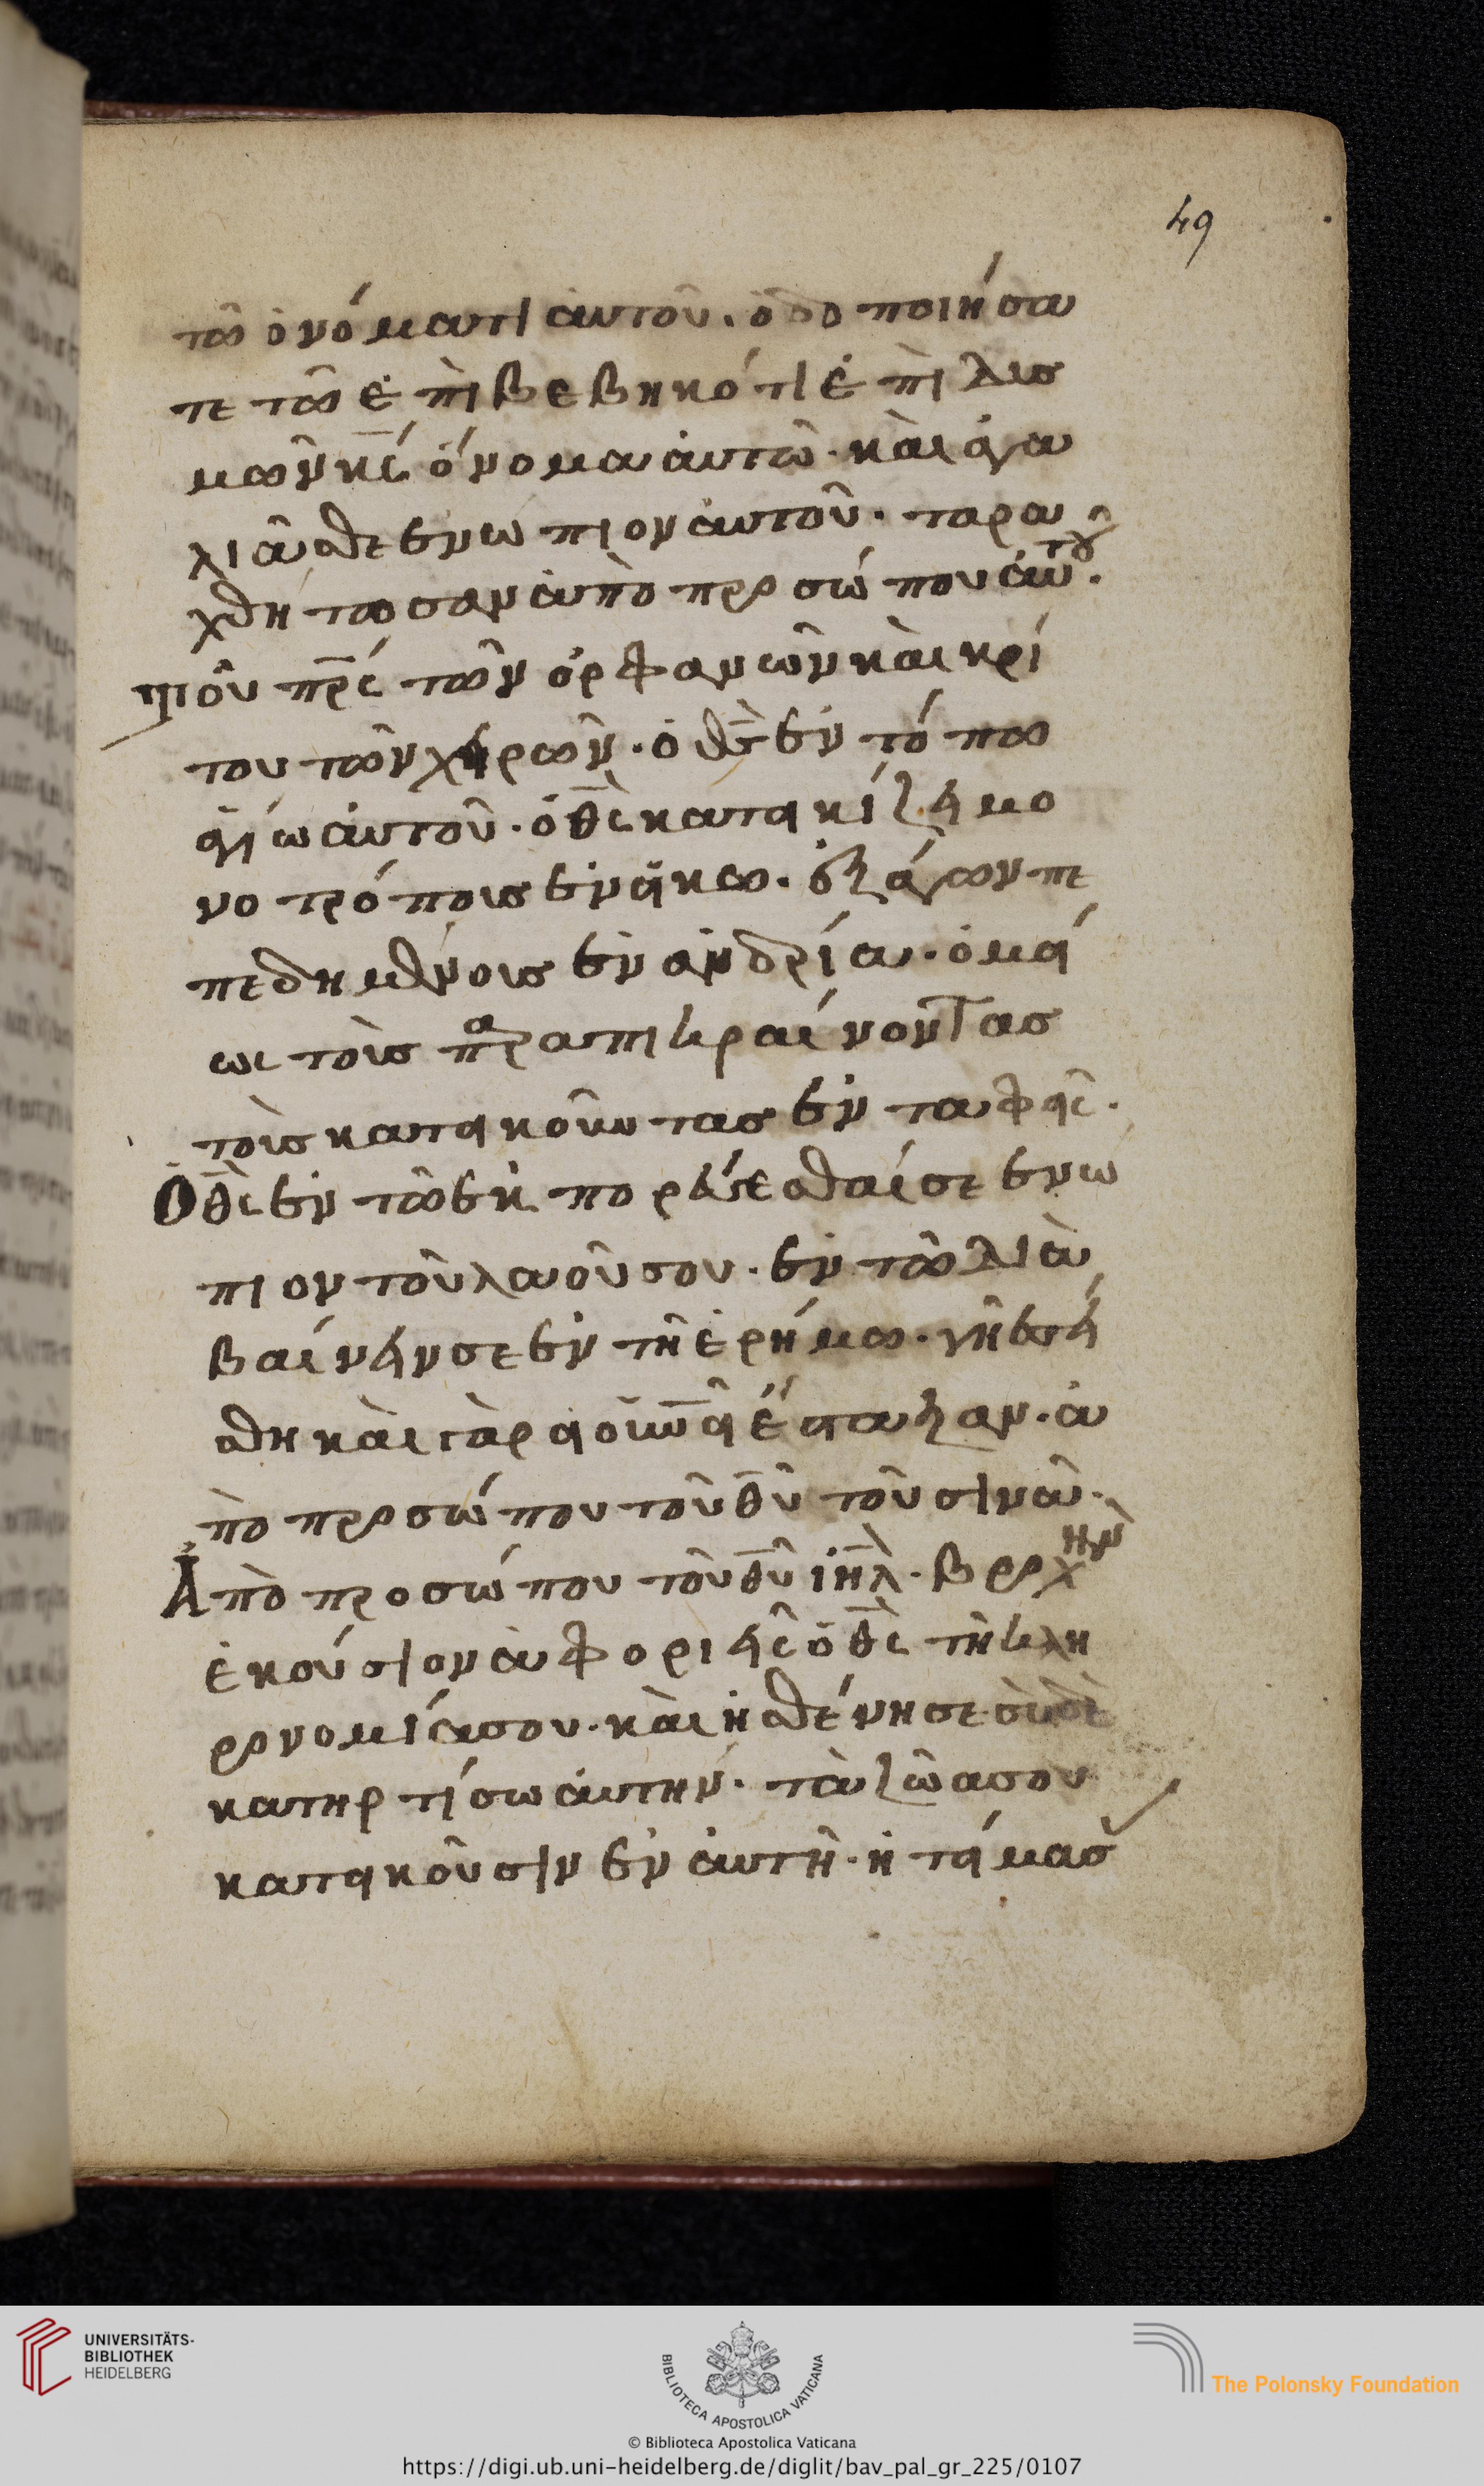 49
τῶ ὀνόματι ἀυτοῦ. ὁδο ποιήσα
τε τῶ ἐπιβεβηκότι ἐπὶ δυσ
μῶν κς́ ὄνομα ἀυτῶ. καὶ ἀγα
λιᾶσθε ἐνωπιον ἀυτοῦ. ταρα
χθήτωσαν ἀπὸ προσώπου ἀυτοῦ.
τοῦ πρ̅ς τῶν ὀρφανῶν καὶ κρί
του τῶν χηρῶν. ὁ θς̅ ἐν τόπω
ἁγίω ἀυτοῦ. ὁ θς̅ κατοικίζει μο
νοτρόπους ἐν οἴκω. ἐξάγων πε
πεδημένους ἐν ἀνδρία. ὁμοί
ως τοὺς παραπικραίνοντας
τοὺς κατοικοῦντας ἐν ταφοις.
Ὁ θς̅ ἐν τῶ ἐκπορέυεσθαί σε ἐνω
πιον τοῦ λαοῦ σου. ἐν τῶ δια
βαίνειν σε ἐν τῆ ἐρήμω. γῆ ἐσεί
σθη καὶ γὰρ οἱ ου̅νοι ἔσταξαν. ἀ
πὸ προσώπου τοῦ θυ̅ τοῦ σινᾶ.
Ἀπὸ προσώπου τοῦ θυ̅ ιη̅λ. βροχὴν
ἑκούσιον ἀφοριεῖς ὁ θς̅ τῆ κλη
ρονομία σου. καὶ ἠσθένησε σὺ δὲ
κατηρτίσω ἀυτην. τὰ ζῶα σου
κατοικοῦσιν ἐν ἀυτῆ. ἡτοίμασ
UNIVERSITÄTS-
BIBLIOTHEK
HEIDELBERG
BIBLIOTECA APOSTOLICA VATICANA
© Biblioteca Apostolica Vaticana
The Polonsky Foundation
https://digi.ub.uni-heidelberg.de/diglit/bav_pal_gr_225/0107